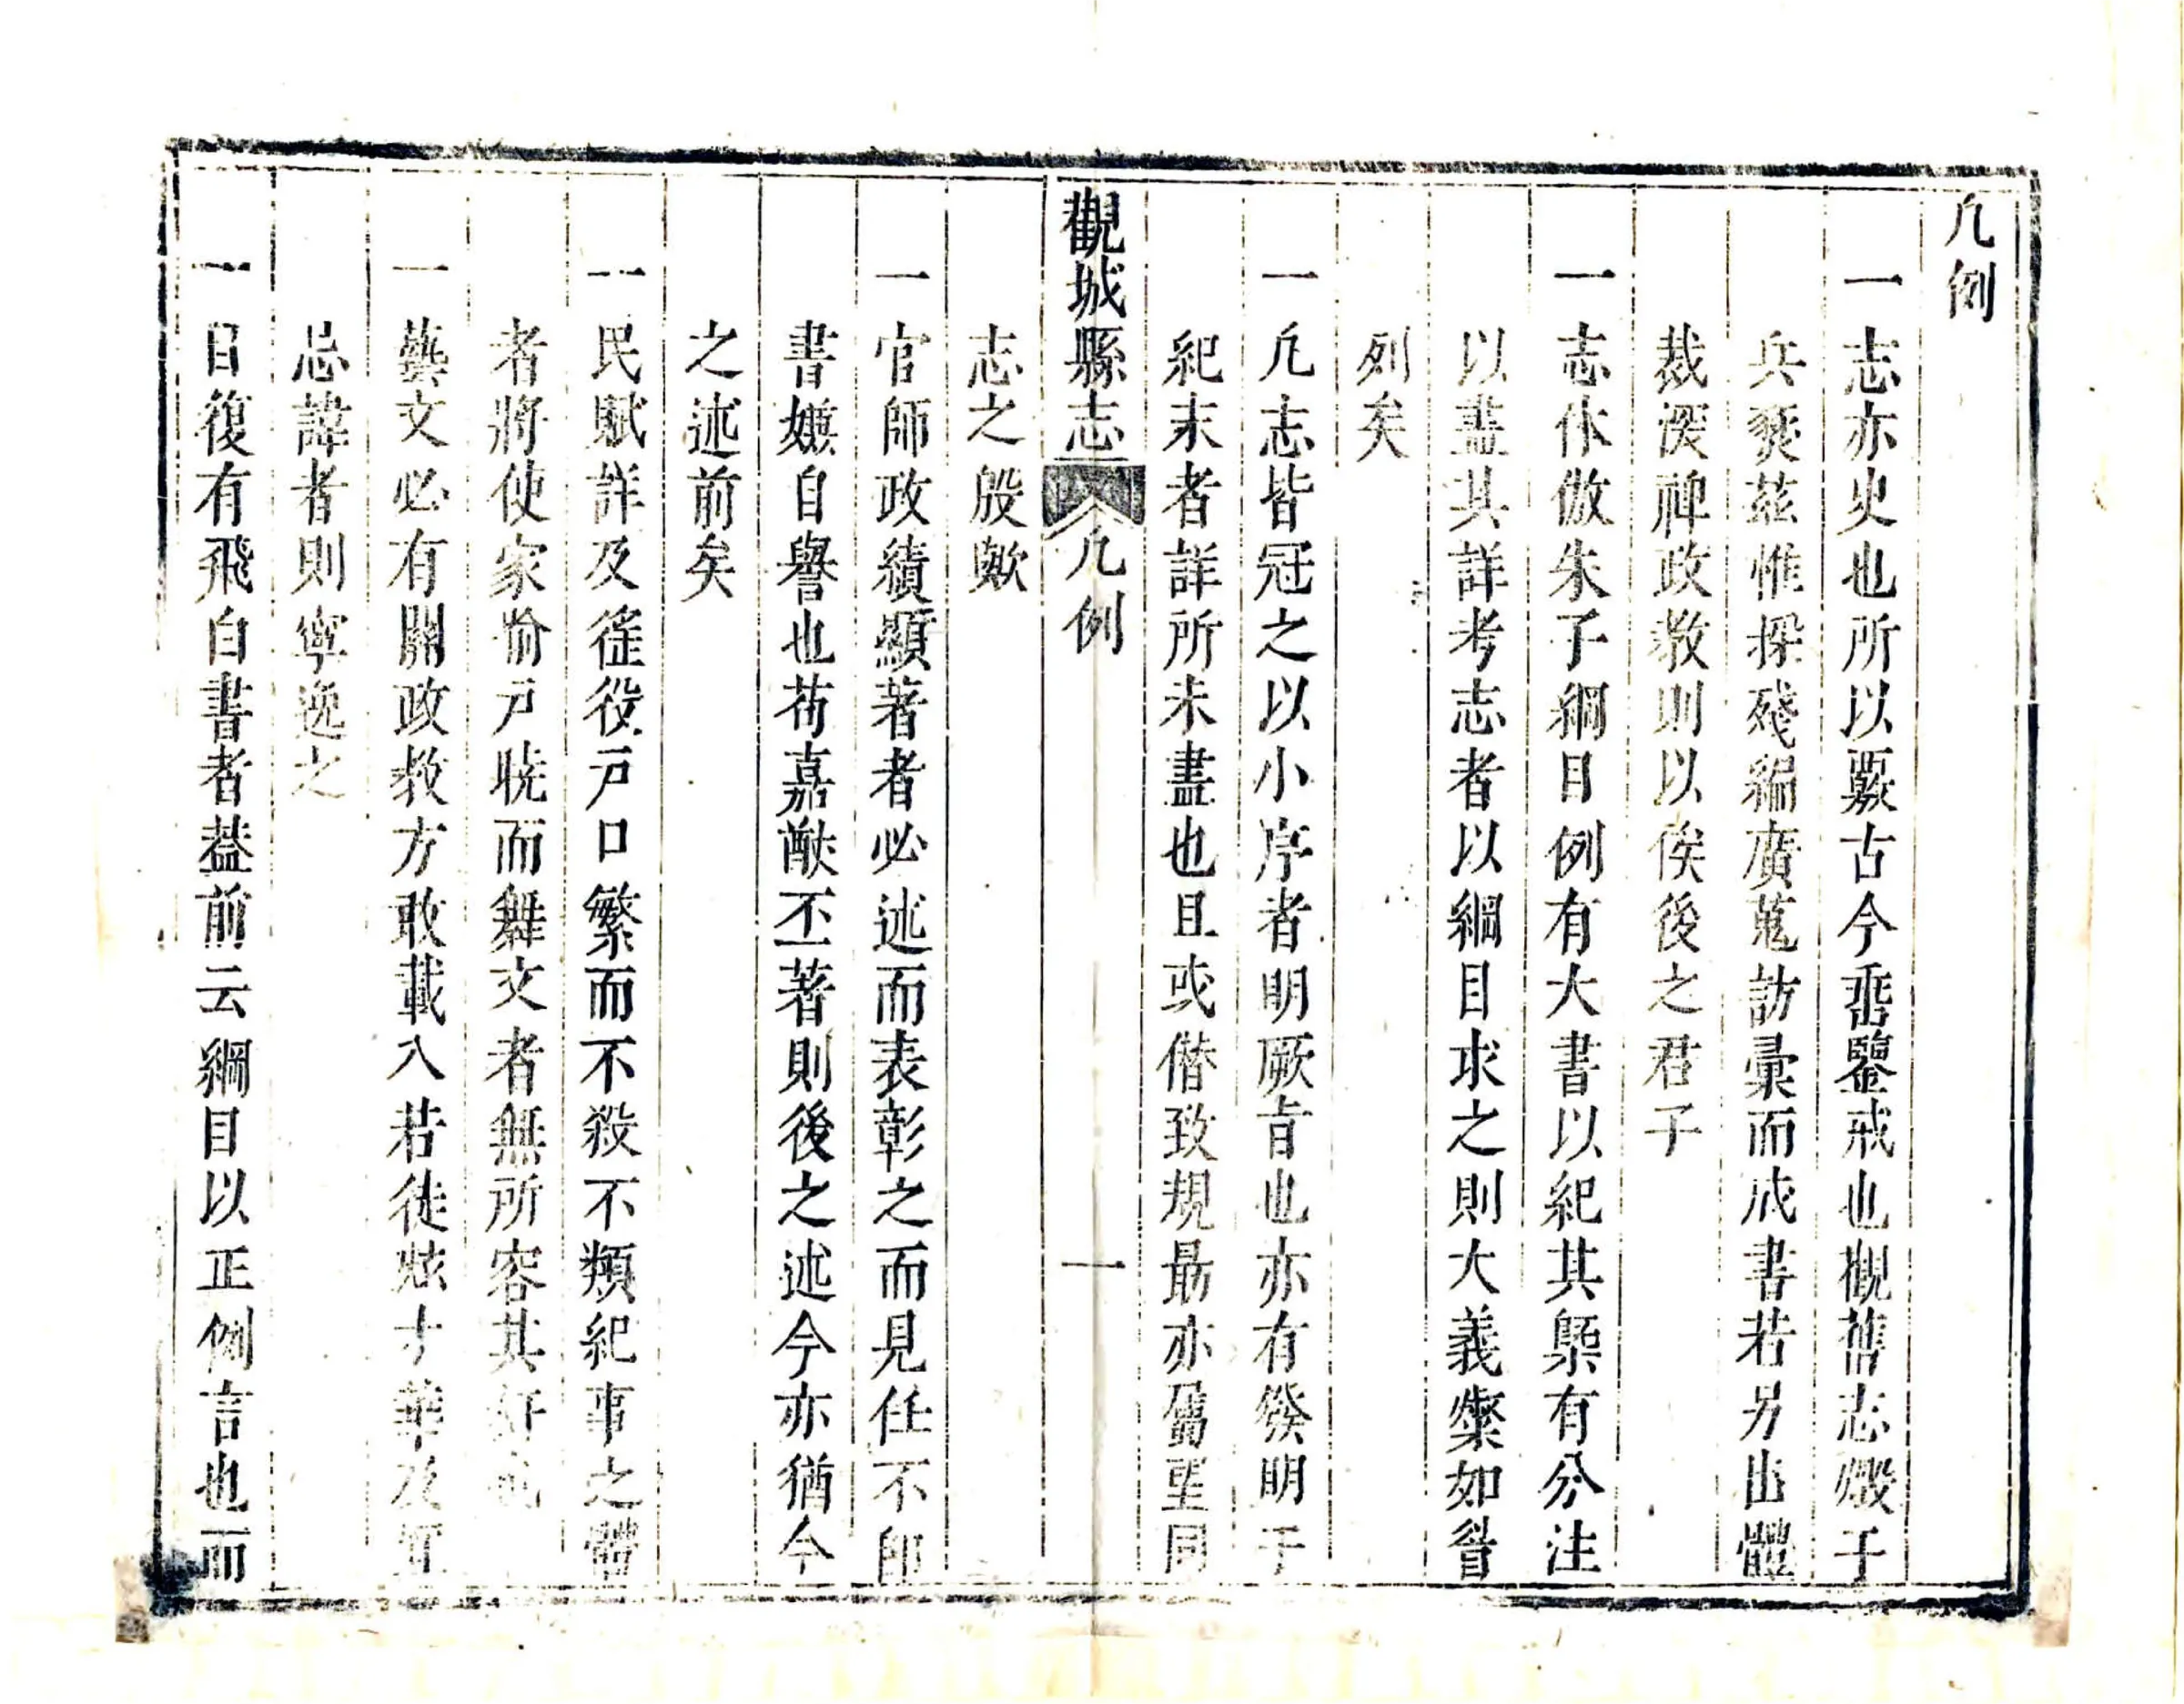 凡例
一志亦史也所以覈古今垂鑒戒也觀舊志燬于
兵燹茲惟探殘編廣蒐訪彙而成書若另出體
裁深裨政教則以俟後之君子
一志体倣朱子綱目例有大書以紀其槩有分注
以盡其詳考志者以綱目求之則大義燦如眉
列矣
一凢志皆冠之以小序者明厥旨也亦有發明于
紀末者詳所未盡也且或偕致規勗亦屬望同
志之殷歟
觀城縣志 凡例 一
一官師政績顯著者必述而表彰之而見任不即
書嫌自譽也苟嘉猷丕著則後之述今亦猶今
之述前矣
一民賦詳及徭役戸口繁而不殺不類紀事之體
者將使家喻戸曉而舞文者無所容其奸
一藝文必有關政教方敢載入若徒炫才華及
忌諱者則寧逸之
一目復有飛白書者葢前云綱目以正例言也而